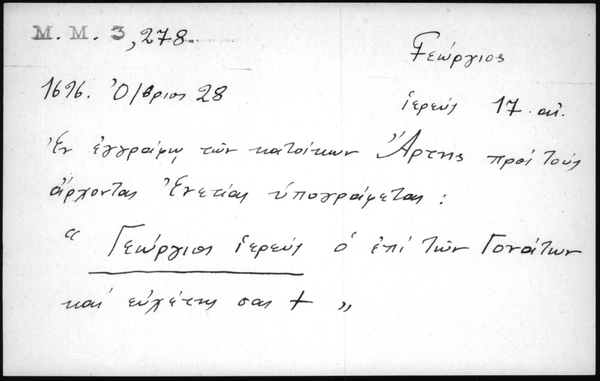 Μ. Μ. 3, 278.
Γεώργιος
1696. Ὀ/βριος 28
ἱερεύς 17. αἰ.
Ἐν ἐγγράφῳ τῶν κατοίκων Ἄρτης πρός τούς
ἄρχοντας Ἑνετίας ὑπογράφεται :
“ Γεώργιος ἱερεύς ὁ ἐπί τῶν Γονάτων
καί εὐχέτης σας + „